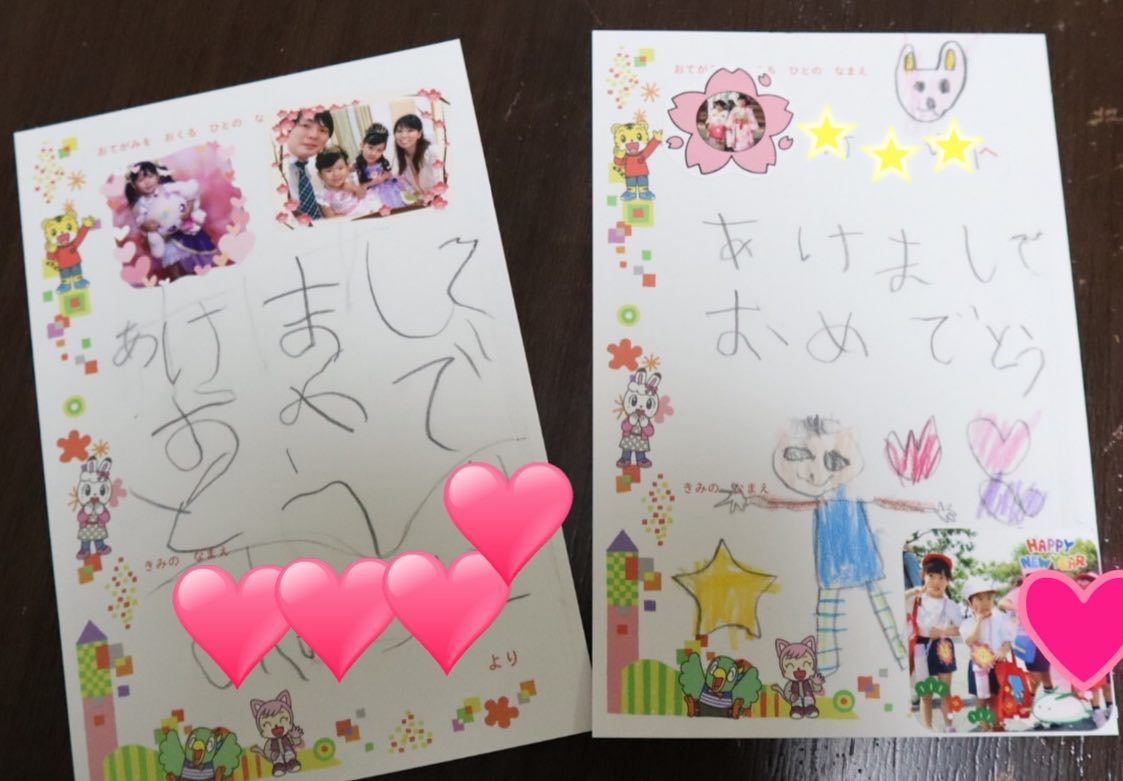 おてがみを おくる ひとの な
あけまして
おめで
とう
きみの なまえ
より
おてが ひとの なまえ
へ
あけましで
おめでとう
きみの なまえ
HAPPY
NEW YEAR